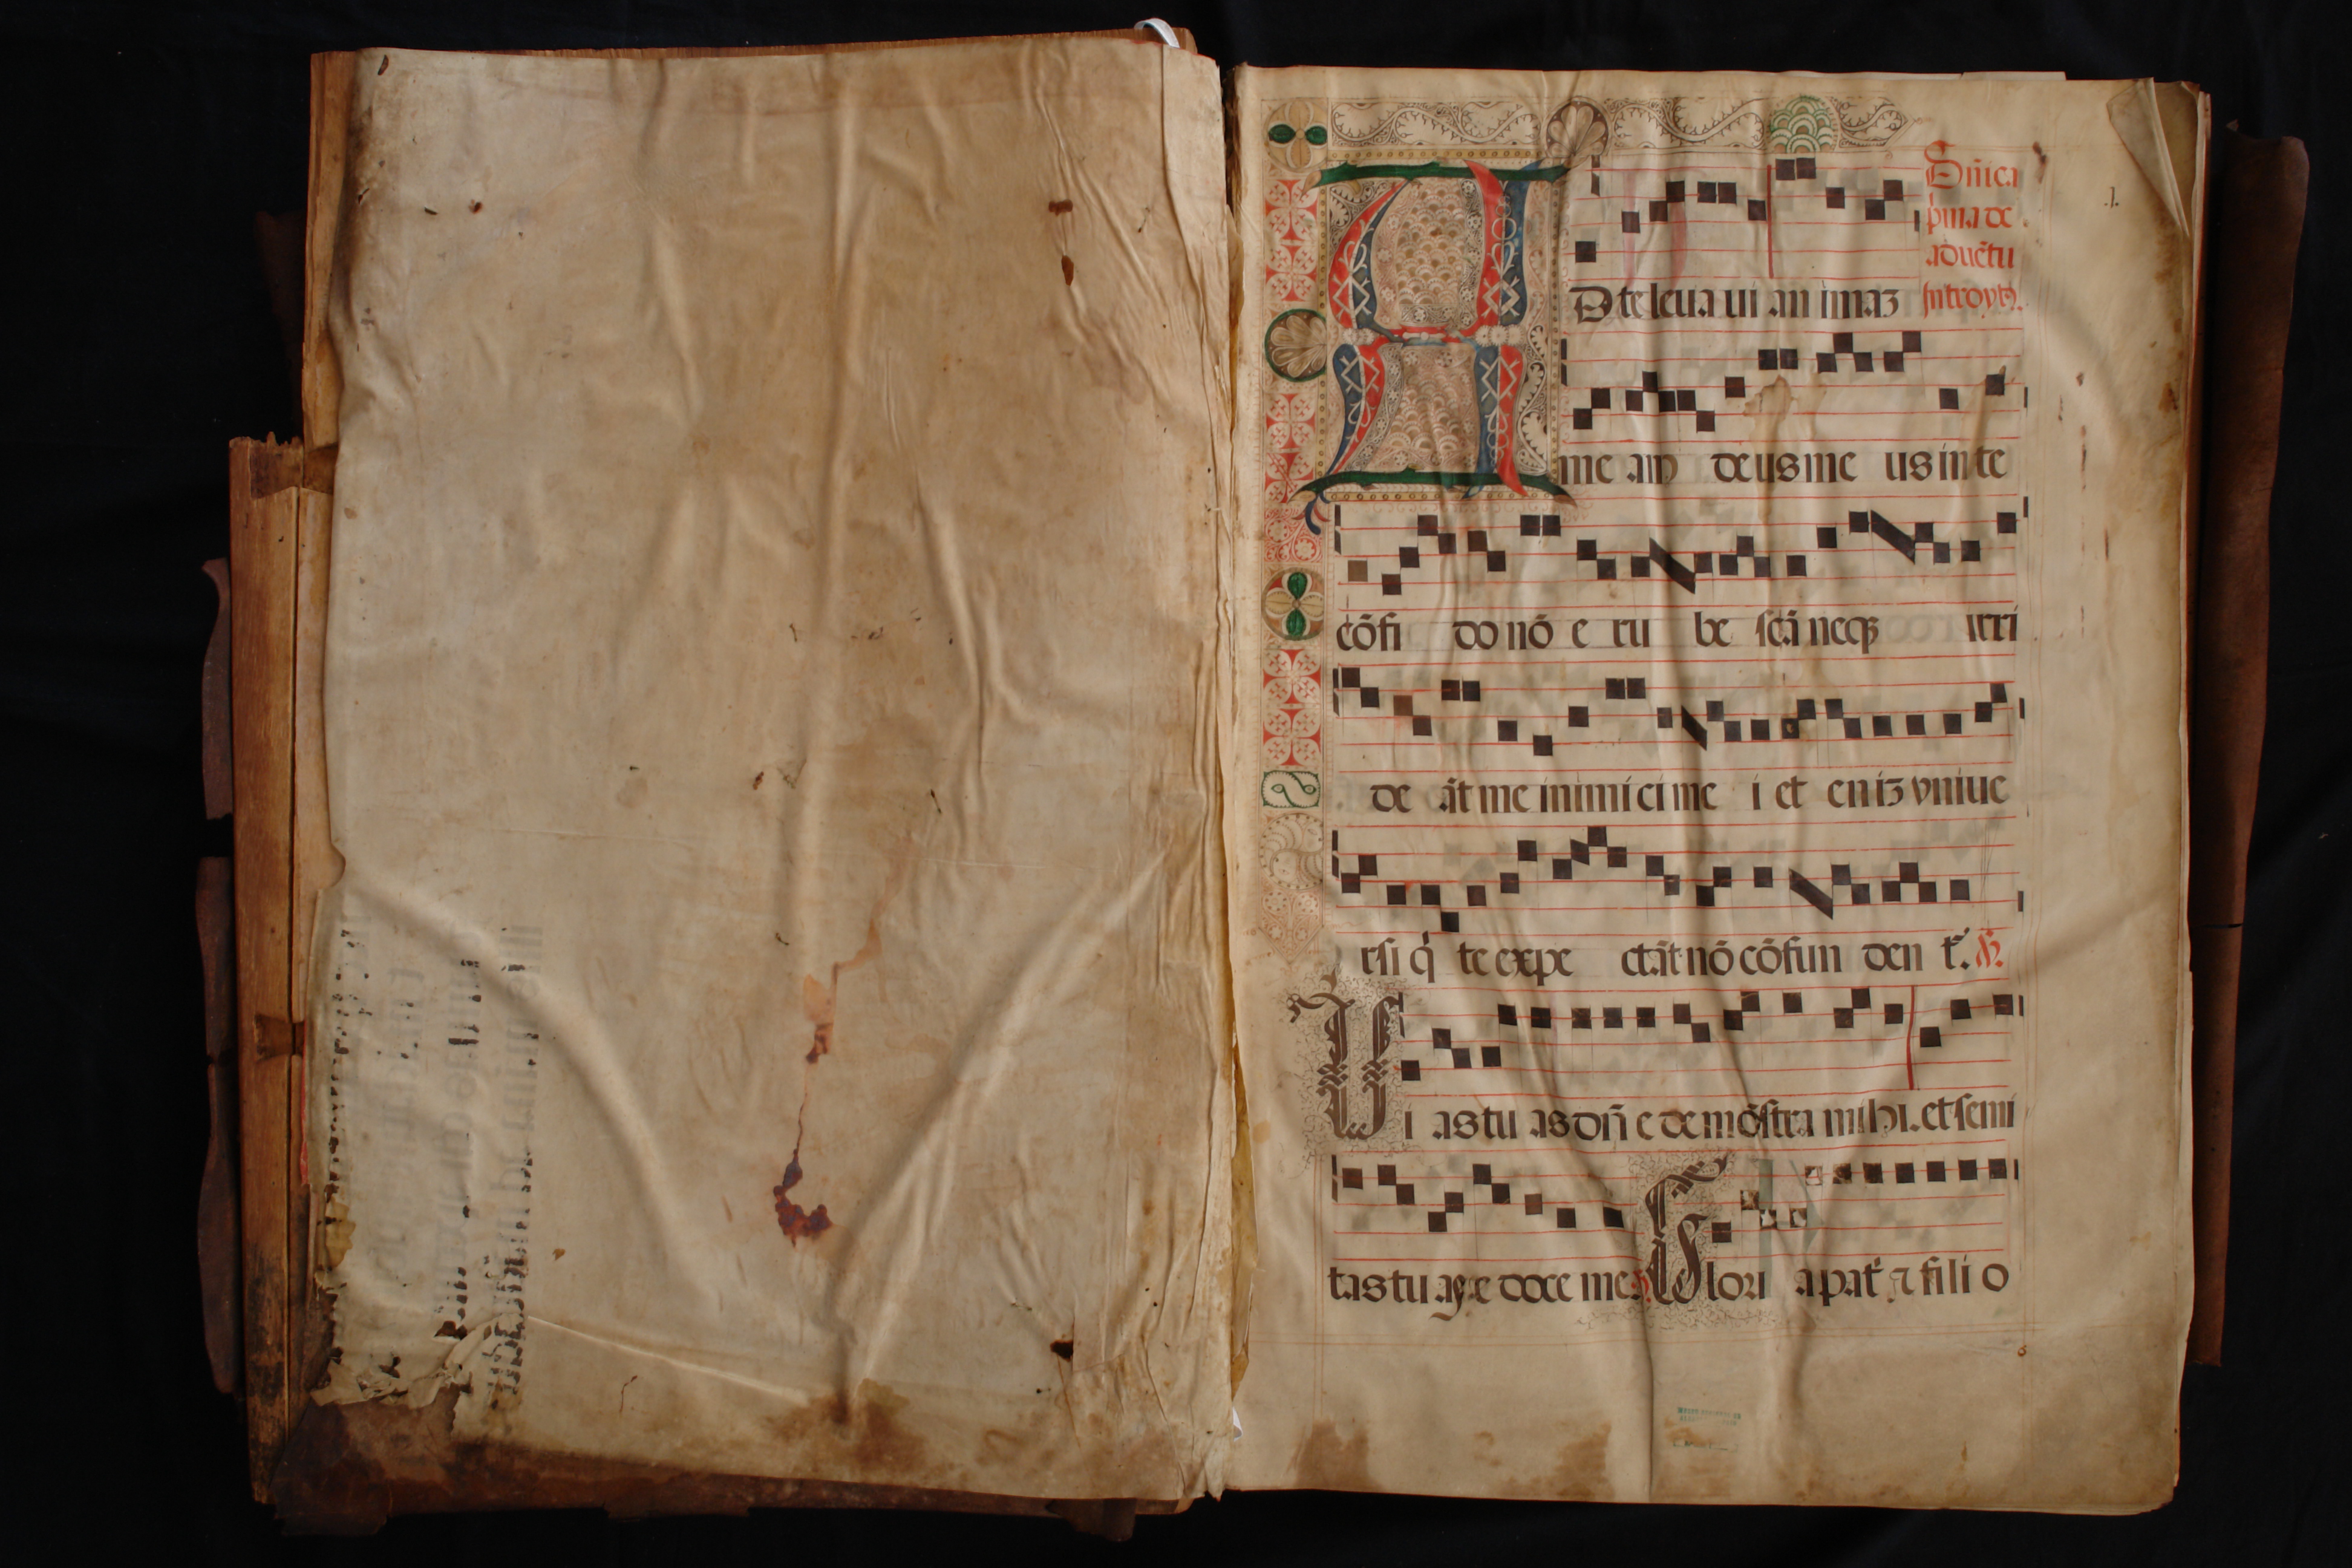 Dñica
p̃ma de
aduẽtu
Introytꝰ.
.1.
AD te leua ui an imaꝫ
me am deus me us in te
cõfi do nõ e ru be scã neqꝫ irri
de ãt me inimi ci me i et eniꝫ vniue
rsi q̇ te expe ctãt nõ cõfun den t᷑. ℣.
Ui as tu as dñ e demõstra mihi. et semi
tas tu as e doce me. ℣. Glori a pat᷑ ⁊ fili o